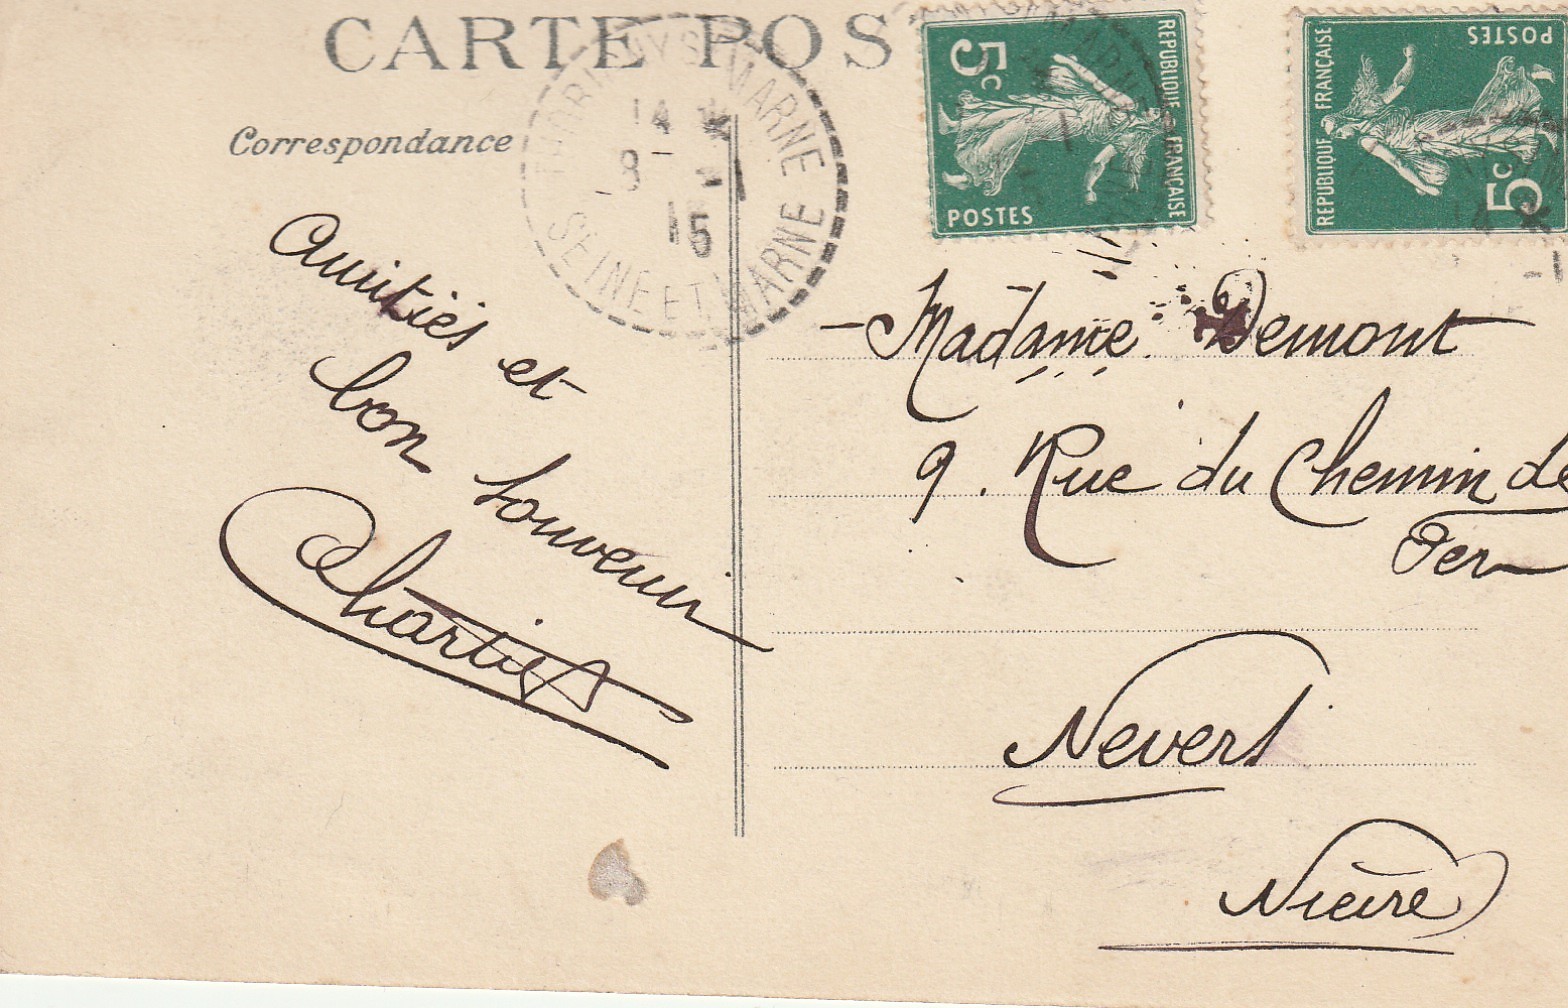 CARTE POS
Correspondance
14 *
8 - 1
15
SEINE ET MARNE
5c
POSTES
REPUBLIQUE FRANÇAISE
5c
POSTES
REPUBLIQUE FRANÇAISE
Amitiés et
bon souvenir
Madame Demont
9. Rue du Chemin de
Fer
Nevers
Nièvre